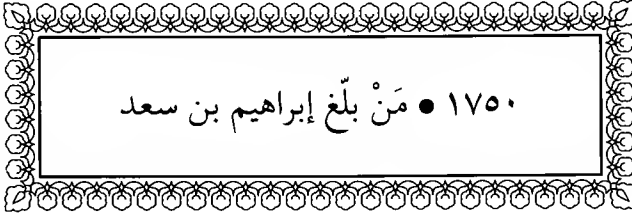 ١٧٥٠ ● مَنْ بلّغ إبراهيم بن سعد